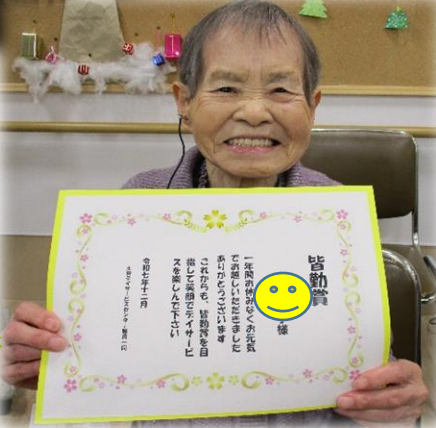 皆勤賞
様
一年間お休みなくお元気
でお越しいただきました
ありがとうございます
これからも、皆勤賞を目
指して笑顔でデイサービ
スを楽しんで下さい
令和七年十二月
デイサービスセンター